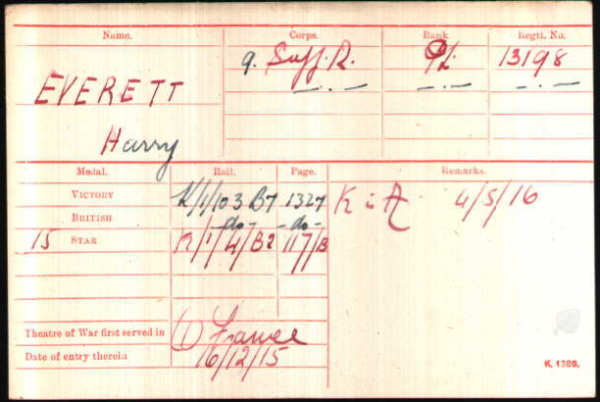 Name. Corps. Rank Regtl. No.
9. Suff. R. Pt. 13198
EVERETT —.—.— —.—.— —.—.—
Harry
Medal. Roll. Page. Remarks.
VICTORY K/1/103 B7 1327 K in A 4/5/16
BRITISH -do- -do-
15 STAR K/1/4/B2 117/B
Theatre of War first served in (1) France
Date of entry therein 16/12/15
K. 1380.